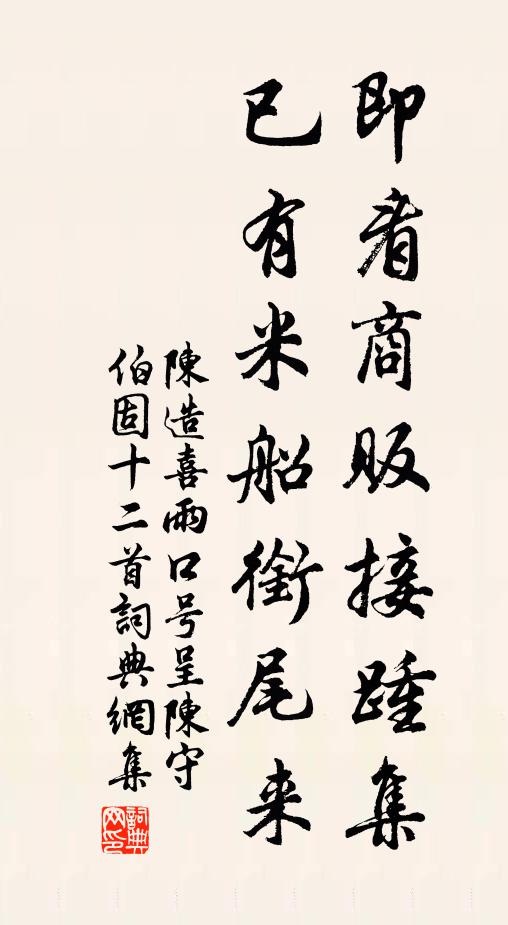 即看商販接踵集
已有米船銜尾来
陳造喜雨口号呈陳守
伯固十二首詞典網集
詞典網印